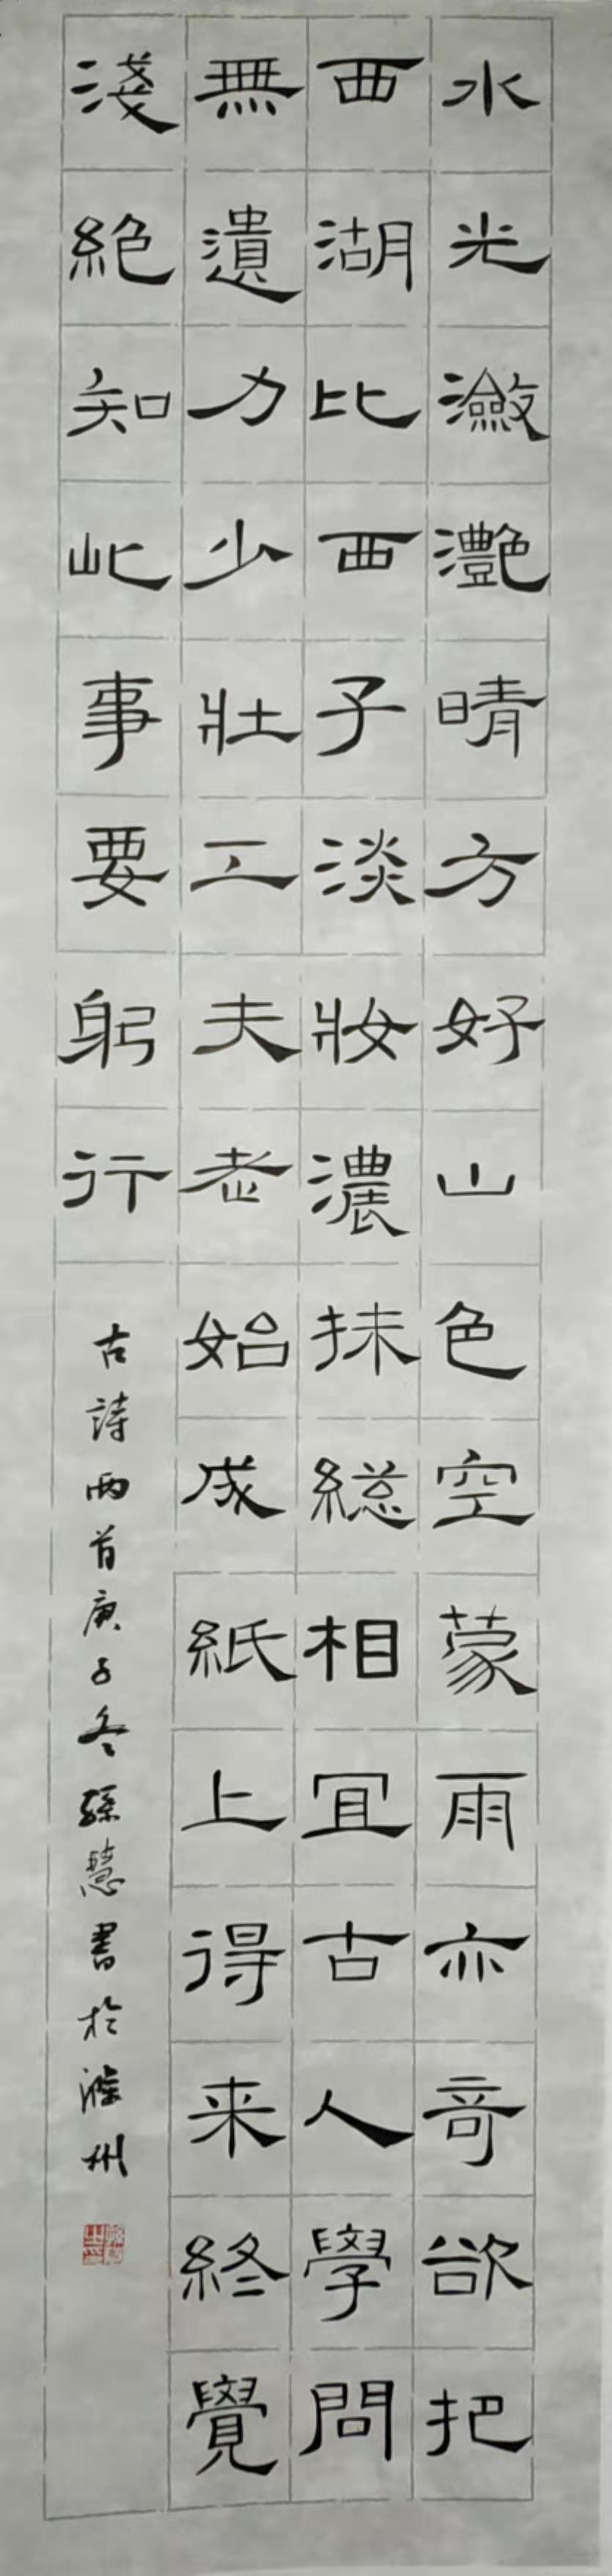 水光瀲灔晴方好山色空蒙雨亦奇欲把
西湖比西子淡妝濃抹緫相冝古人學問
無遺力少壯工夫老始成紙上得来終覺
淺絶知此事要躬行
古詩兩首庚子冬孫慧書於滁州